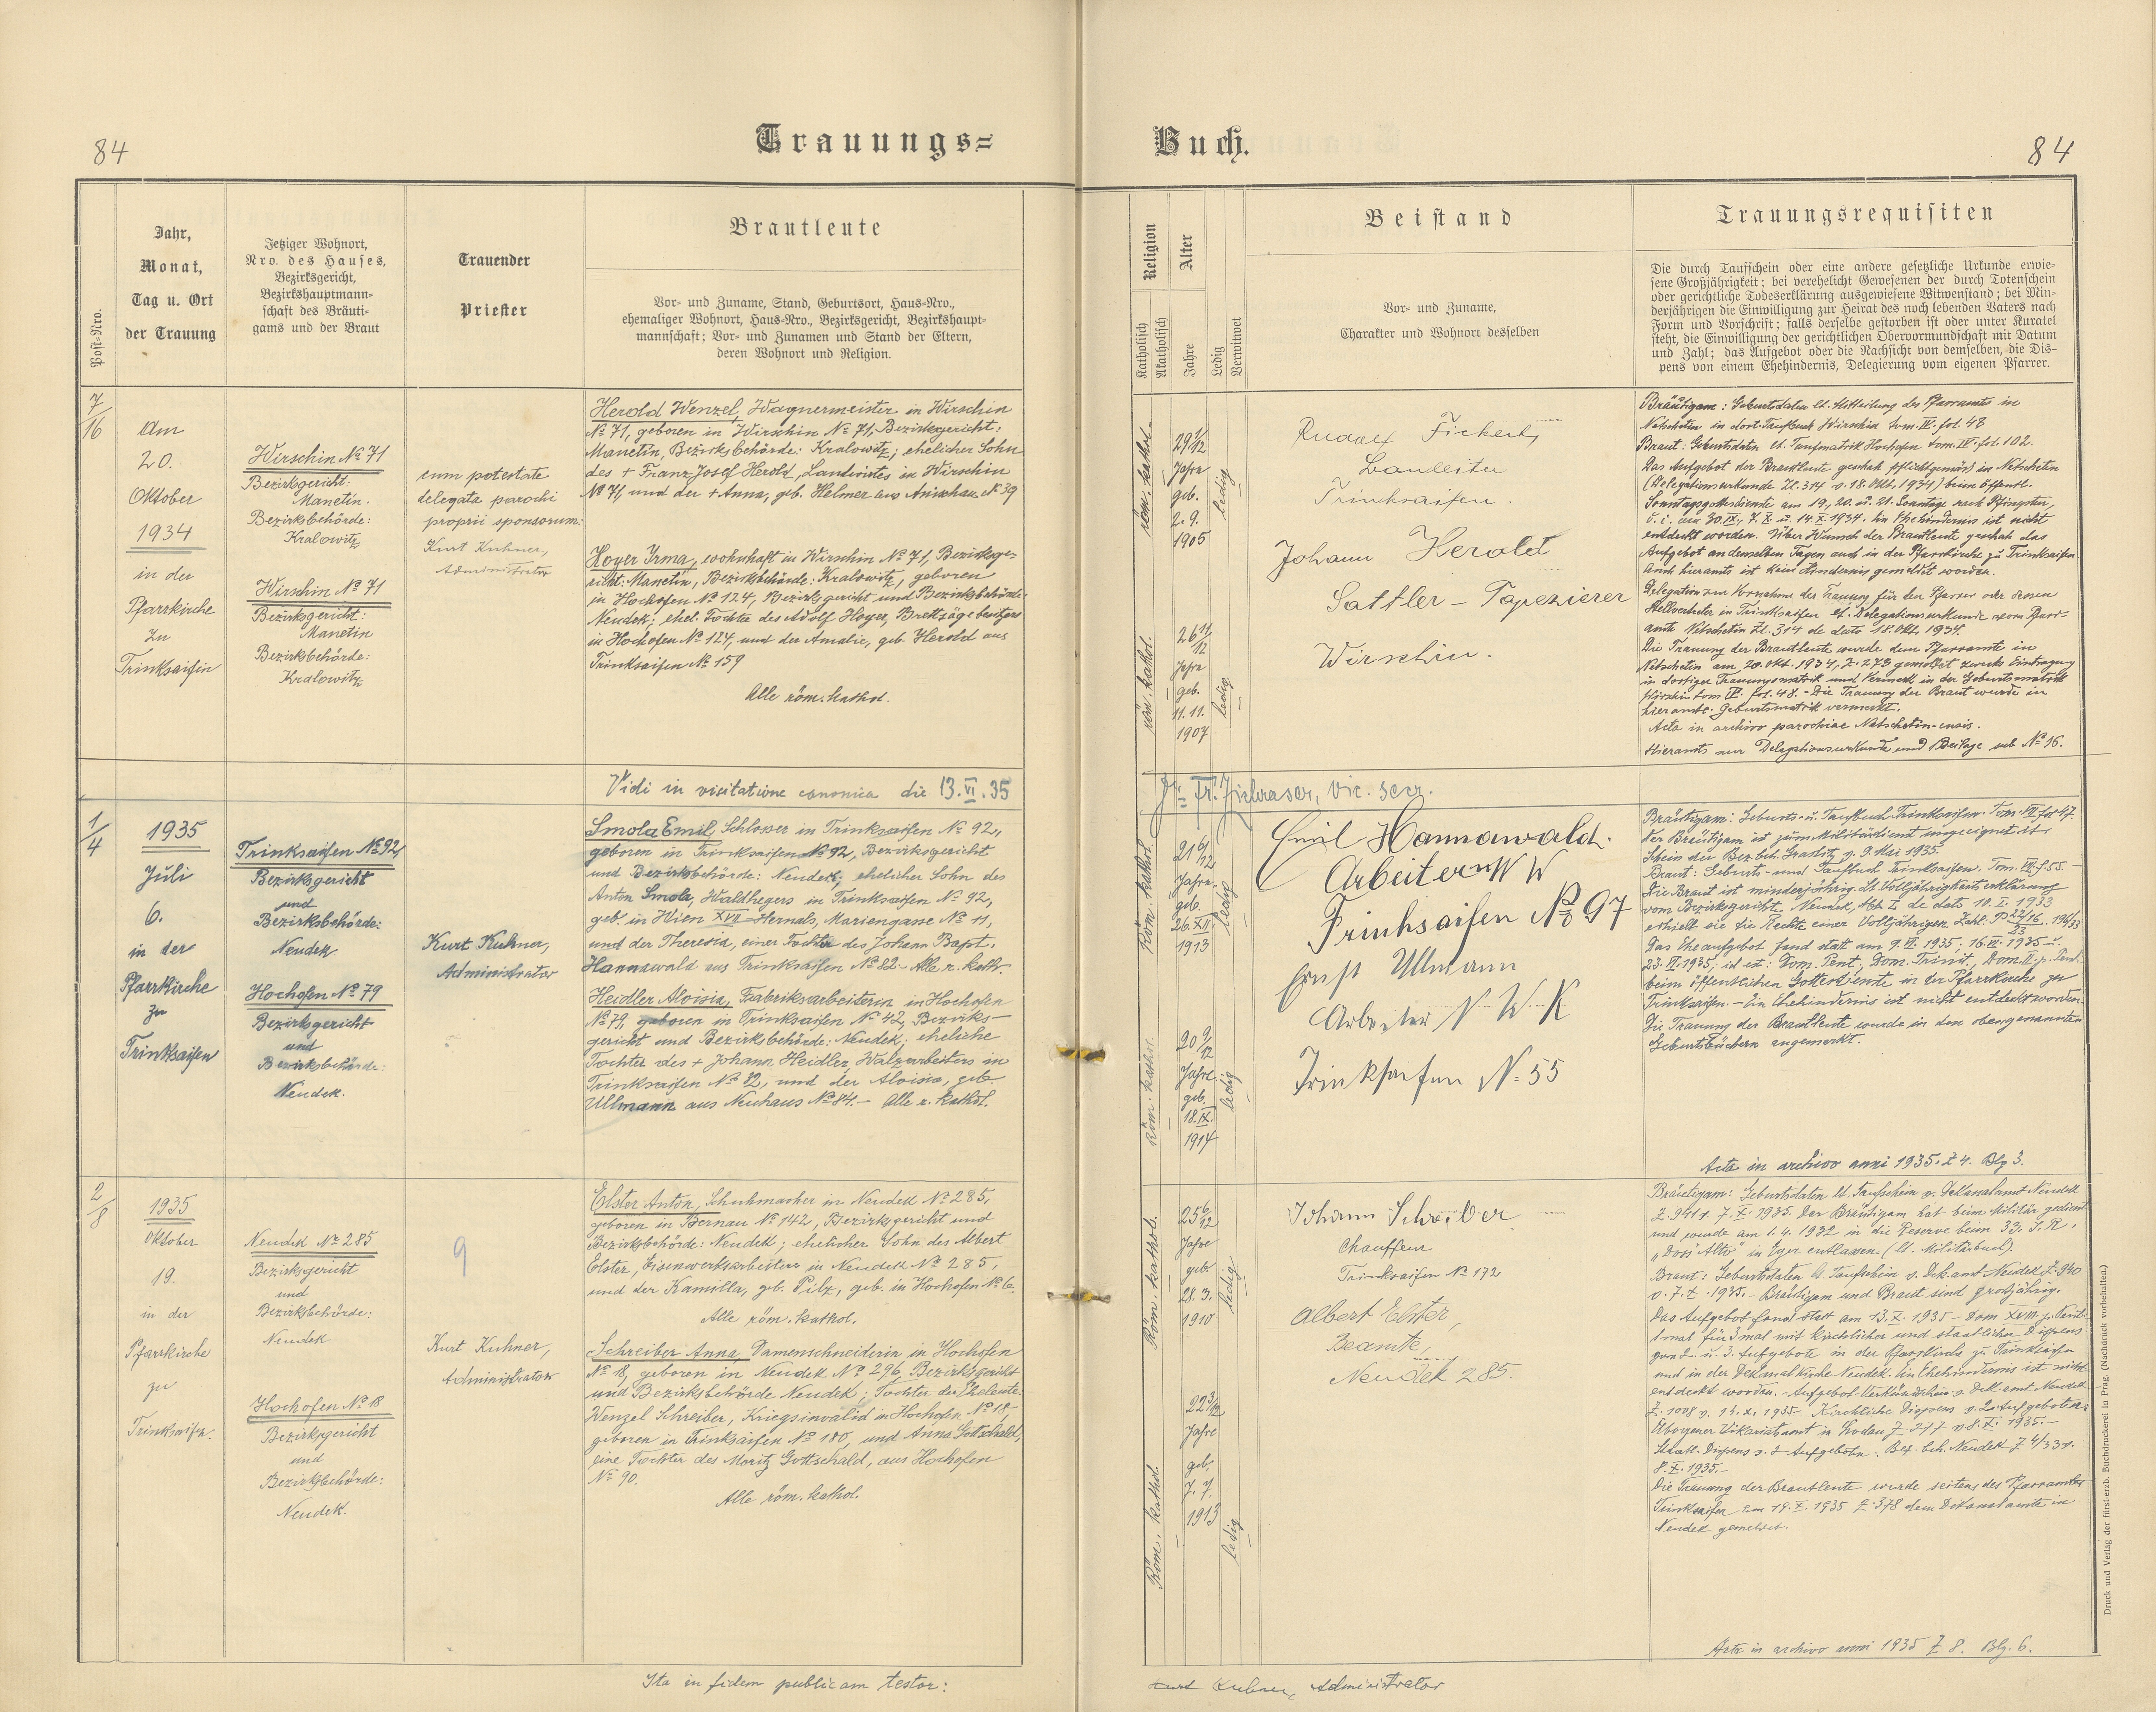 84
Trauungs=
Buch.
84
Post-Nro.
Jahr,
Monat,
Tag u. Ort
der Trauung
Jetziger Wohnort,
Nro. des Hauses,
Bezirksgericht,
Bezirkshauptmann-
schaft des Bräuti-
gams und der Braut
Trauender
Priester
Brautleute
Vor- und Zuname, Stand, Geburtsort, Haus-Nro.,
ehemaliger Wohnort, Haus-Nro., Bezirksgericht, Bezirkshaupt-
mannschaft; Vor- und Zunamen und Stand der Eltern,
deren Wohnort und Religion.
Religion
Katholisch
Akatholisch
Alter
Jahre
Ledig
Verwitwet
Beistand
Vor- und Zuname,
Charakter und Wohnort desselben
Trauungsrequisiten
Die durch Taufschein oder eine andere gesetzliche Urkunde erwie-
sene Großjährigkeit; bei verehelicht Gewesenen der durch Totenschein
oder gerichtliche Todeserklärung ausgewiesene Witwenstand; bei Min-
derjährigen die Einwilligung zur Heirat des noch lebenden Vaters nach
Form und Vorschrift; falls derselbe gestorben ist oder unter Kuratel
steht, die Einwilligung der gerichtlichen Obervormundschaft mit Datum
und Zahl; das Aufgebot oder die Nachsicht von demselben, die Dis-
pens von einem Ehehindernis, Delegierung vom eigenen Pfarrer.
7/16
Am
20.
Oktober
1934
in der
Pfarrkirche
zu
Trinksaifen
Wirschin No 71
Bezirksgericht:
Manetin.
Bezirksbehörde:
Kralowitz
Wirschin No 71
Bezirksgericht:
Manetin
Bezirksbehörde:
Kralowitz
cum potestate
delegata parochi
proprii sponsorum:
Kurt Kuhner,
Administrator
Herold Wenzel, Wagnermeister in Wirschin
No 71, geboren in Wirschin No 71, Bezirksgericht:
Manetin, Bezirksbehörde: Kralowitz; ehelicher Sohn
des + Franz Josef Herold, Landwirtes in Wirschin
No 71, und der + Anna, geb. Helmer aus No 39
Hoyer Irma, wohnhaft in Wirschin No 71, Bezirksge-
richt: Manetin, Bezirksbehörde: Kralowitz, geboren
in Hochofen No 124, Bezirksgericht und Bezirksbehörde:
Neudek; ehel. Tochter des Adolf Hoyer, Brettsägebesitzers
in Hochofen No 124, und der Amalie, geb. Herold aus
Trinksaifen No 159
Alle röm. kathol.
röm. kathol.
29 1/12
Jahre
geb.
2. 9.
1905
ledig
röm. kathol.
26 11/12
Jahre
geb.
11. 11.
1907
ledig
Rudolf
Bauleiter
Trinksaifen.
Johann Herold
Sattler – Tapezierer
Wirschin.
Bräutigam: Geburtsdaten lt. Mitteilung des Pfarramts in
Netschetin in dort. Taufbuch Wirschin tom. IV. fol. 48
Braut: Geburtsdaten lt. Taufmatrik Hochofen tom. IV. fol. 102.
Das Aufgebot der Brautleute geschah pflichtgemäß in Netschetin
(Delegationsurkunde Zl. 314 v. 18. Okt. 1934) beim öffentl.
Sonntagsgottesdienste am 19., 20. u. 21. Sonntage nach Pfingsten,
d. i. am 30. IX., 7. X. u. 14. X. 1934. Ein Ehehindernis ist nicht
entdeckt worden. Über Wunsch der Brautleute geschah das
Aufgebot an denselben Tagen auch in der Pfarrkirche zu Trinksaifen.
Auch hieramts ist kein Hindernis gemeldet worden.
Delegation zur Vornahme der Trauung für den Pfarrer oder dessen
Stellvertreter in Trinksaifen lt. Delegationsurkunde vom Pfarr-
amte Netschetin Zl. 314 de dato 18. Okt. 1934.
Die Trauung der Brautleute wurde dem Pfarramte in
Netschetin am 20. Okt. 1934, Z. 273 gemeldet zwecks Eintragung
in dortiger Trauungsmatrik und Vermerk in der Geburtsmatrik
Wirschin tom IV. fol. 48. – Die Trauung der Braut wurde in
hieramtl. Geburtsmatrik vermerkt.
Acta in archivo parochiae Netschetin-ensis.
Hieramts nur Delegationsurkunde und Beilage sub No 16.
Vidi in visitatione canonica die 13. VI. 35
vic. secr.
1/4
1935
Juli
6.
in der
Pfarrkirche
zu
Trinksaifen
Trinksaifen No 92
Bezirksgericht
und
Bezirksbehörde:
Neudek
Hochofen No 79
Bezirksgericht
und
Bezirksbehörde:
Neudek.
Kurt Kuhner,
Administrator
Smola Emil, Schlosser in Trinksaifen No 92,
geboren in Trinksaifen No 92, Bezirksgericht
und Bezirksbehörde: Neudek; ehelicher Sohn des
Anton Smola, Waldhegers in Trinksaifen No 92,
geb. in Wien XVII Hernals, Mariengasse No 11,
und der Theresia, einer Tochter des Johann Bapt.
Hannawald aus Trinksaifen No 82. – Alle r. kath.
Heidler Aloisia, Fabriksarbeiterin in Hochofen
No 79, geboren in Trinksaifen No 42, Bezirks-
gericht und Bezirksbehörde: Neudek; eheliche
Tochter des + Johann Heidler, Walzarbeiters in
Trinksaifen No 82, und der Aloisia, geb.
Ullmann aus Neuhaus No 84. – Alle r. kathol.
Röm. kathol.
21 6/12
Jahre
geb.
26. XII.
1913
ledig
Röm. kathol.
20 9/12
Jahre
geb.
18. IX.
1914
ledig
Emil Hannawald.
Arbeiter NW W
Trinksaifen No 97
Ernst Ullmann
Arbeiter N W K
Trinksaifen N. 55
Bräutigam: Geburts- u. Taufbuch Trinksaifen. Tom. VII fol 47.
Der Bräutigam ist zum Militärdienst ungeeignet lt.
Schein der Bez. beh. Graslitz v. 9. Mai 1935.
Braut: Geburts- und Taufbuch Trinksaifen. Tom. VII. f. 55. –
Die Braut ist minderjährig. Lt. Volljährigkeitserklärung
vom Bezirksgericht Neudek, Abt. I de dato 10. I. 1933
erhielt sie die Rechte einer Volljährigen
Das Eheaufgebot fand statt am 9. VI. 1935, 16. VI. 1935 u.
23. VI. 1935, id est: Dom. Pent., Dom. Trinit., Dom. II. p. Pent.
beim öffentlichen Gottesdienste in der Pfarrkirche zu
Trinksaifen. – Ein Ehehindernis ist nicht entdeckt worden.
Die Trauung der Brautleute wurde in den obengenannten
Geburtsbüchern angemerkt.
Acta in archivo anni 1935. Z 4. Blg 3.
2/8
1935
Oktober
19.
in der
Pfarrkirche
zu
Trinksaifen.
Neudek No 285
Bezirksgericht
und
Bezirksbehörde:
Neudek
Hochofen No 18
Bezirksgericht
und
Bezirksbehörde:
Neudek.
9
Kurt Kuhner,
Administrator
Elster Anton, Schuhmacher in Neudek No 285,
geboren in Bernau No 142, Bezirksgericht und
Bezirksbehörde: Neudek; ehelicher Sohn des Albert
Elster, Eisenwerksarbeiters in Neudek No 285,
und der Kamilla, geb. Pilz, geb. in Hochofen No 6.
Alle röm. kathol.
Schreiber Anna, Damenschneiderin in Hochofen
No 18, geboren in Neudek No 296, Bezirksgericht
und Bezirksbehörde Neudek; Tochter der Eheleute
Wenzel Schreiber, Kriegsinvalid in Hochofen No 18,
geboren in Trinksaifen No 180, und Anna Gottschald,
eine Tochter des Moritz Gottschald, aus Hochofen
No 90.
Alle röm. kathol.
Röm. kathol.
25 6/12
Jahre
geb.
28. 3.
1910
ledig
Röm. kathol.
22 3/12
Jahre
geb.
7. 7.
1913
ledig
Johann Schreiber
Chauffeur
Trinksaifen No 172
Albert Elster,
Beamte,
Neudek 285.
Bräutigam: Geburtsdaten lt. Taufschein v. Dekanalamt Neudek
Z. 941 v. 7. X. 1935. Der Bräutigam hat beim Militär gedient
und wurde am 1. 4. 1932 in die Reserve beim 33. I. R.
„Doss Alto" in Eger entlassen (lt. Militärbuch).
Braut: Geburtsdaten lt. Taufschein v. Dek. amt Neudek Z. 940
v. 7. X. 1935. – Bräutigam und Braut sind großjährig.
Das Aufgebot fand statt am 13. X. 1935 – Dom XVIII. p. Pent.
1 mal für 3 mal mit kirchlicher und staatlicher Dispens
vom 2. u. 3. Aufgebote in der Pfarrkirche zu Trinksaifen
und in der Dekanalkirche Neudek. Ein Ehehindernis ist nicht
entdeckt worden. – Aufgebot-Verkündschein v. Dek. amt Neudek
Z. 1008 v. 14. X. 1935 – Kirchliche Dispens v. 2 Aufgeboten:
Vikariatsamt in Z. 277 v. 8. X. 1935. –
Staatl. Dispens v. 2 Aufgeboten: Bez. beh. Neudek Z 4/331.
8. X. 1935. –
Die Trauung der Brautleute wurde seitens des Pfarramtes
Trinksaifen am 19. X. 1935 Z. 378 dem Dekanalamte in
Neudek gemeldet.
Acta in archivo anni 1935 Z 8. Blg. 6.
Ita in fidem publicam testor:
Kurt Kuhner, Administrator
Druck und Verlag der fürst-erzb. Buchdruckerei in Prag. (Nachdruck vorbehalten.)